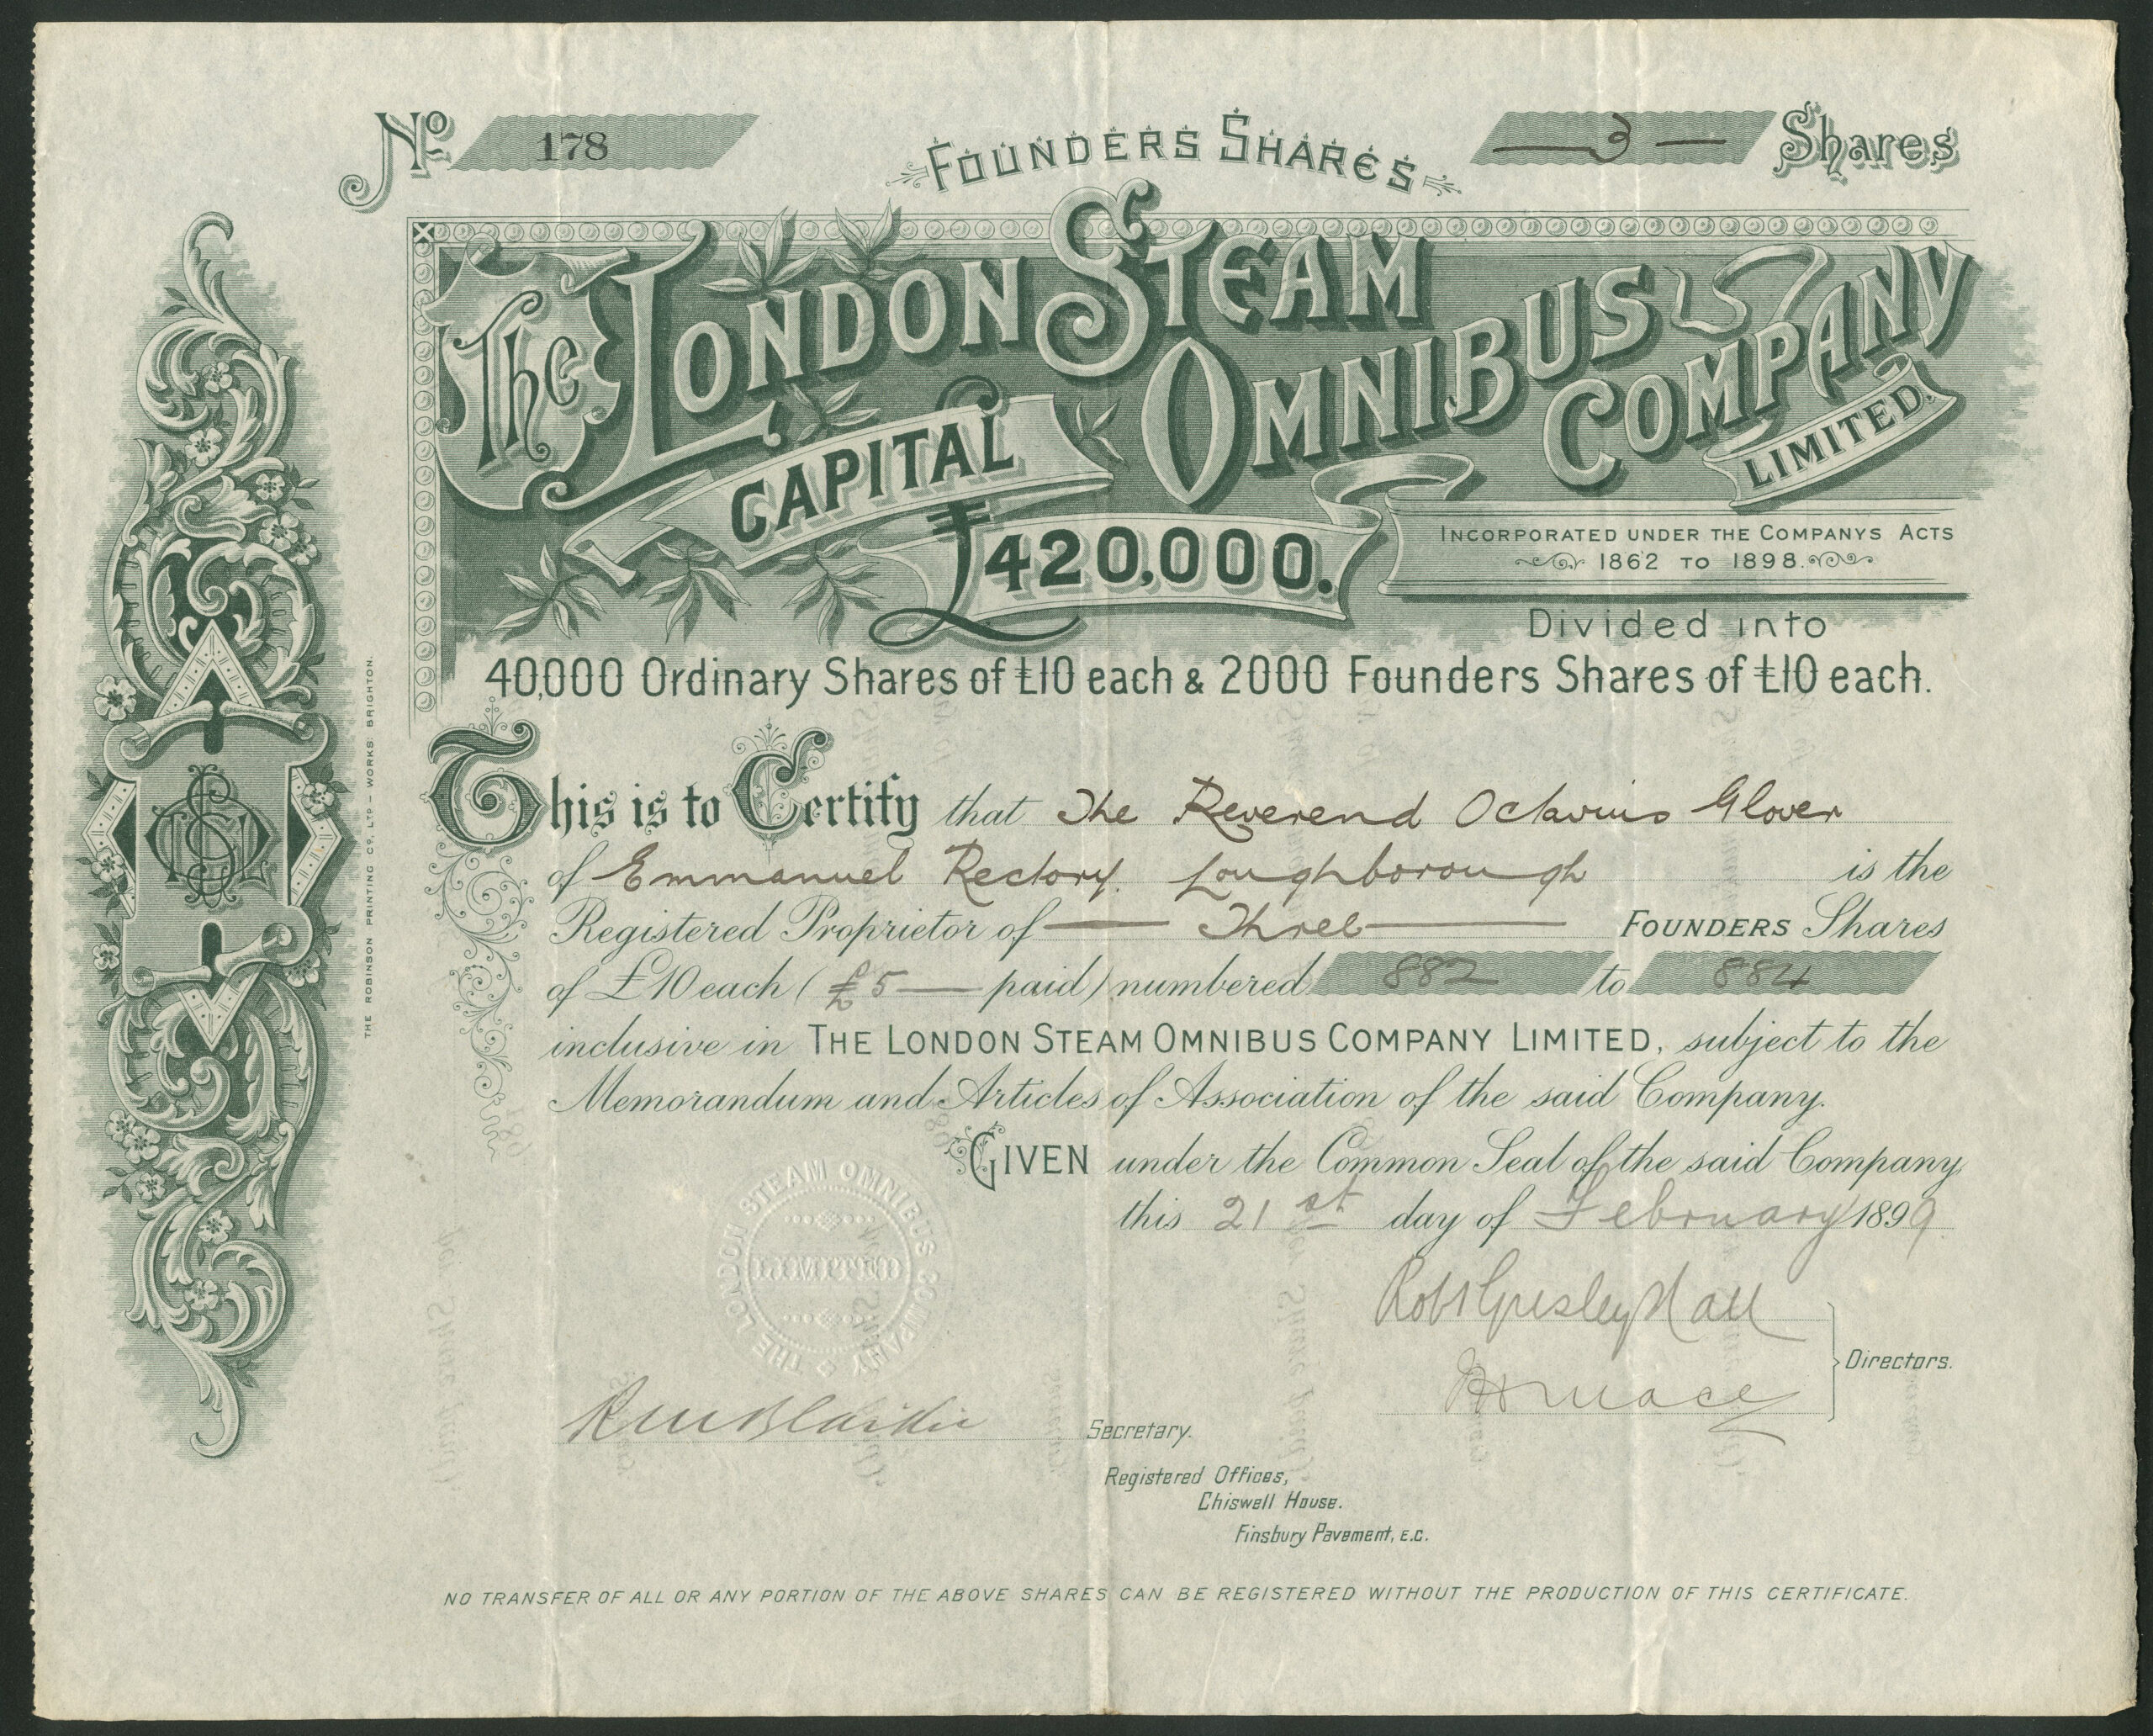 No 178
FOUNDERS SHARES
— 3 — Shares
The LONDON STEAM OMNIBUS COMPANY LIMITED.
CAPITAL £420,000.
INCORPORATED UNDER THE COMPANYS ACTS
1862 TO 1898.
Divided into
40,000 Ordinary Shares of £10 each & 2000 Founders Shares of £10 each.
This is to Certify that The Reverend Octavius Glover
of Emmanuel Rectory. Loughborough is the
Registered Proprietor of — Three — FOUNDERS Shares
of £10 each (£5 — paid) numbered 882 to 884
inclusive in THE LONDON STEAM OMNIBUS COMPANY LIMITED, subject to the
Memorandum and Articles of Association of the said Company.
GIVEN under the Common Seal of the said Company
this 21st day of February 1899.
THE LONDON STEAM OMNIBUS COMPANY
LIMITED
Robt Gresley Hall
Directors.
Secretary.
Registered Offices,
Chiswell House.
Finsbury Pavement, E.C.
NO TRANSFER OF ALL OR ANY PORTION OF THE ABOVE SHARES CAN BE REGISTERED WITHOUT THE PRODUCTION OF THIS CERTIFICATE.
THE ROBINSON PRINTING CO. LTD — WORKS: BRIGHTON.